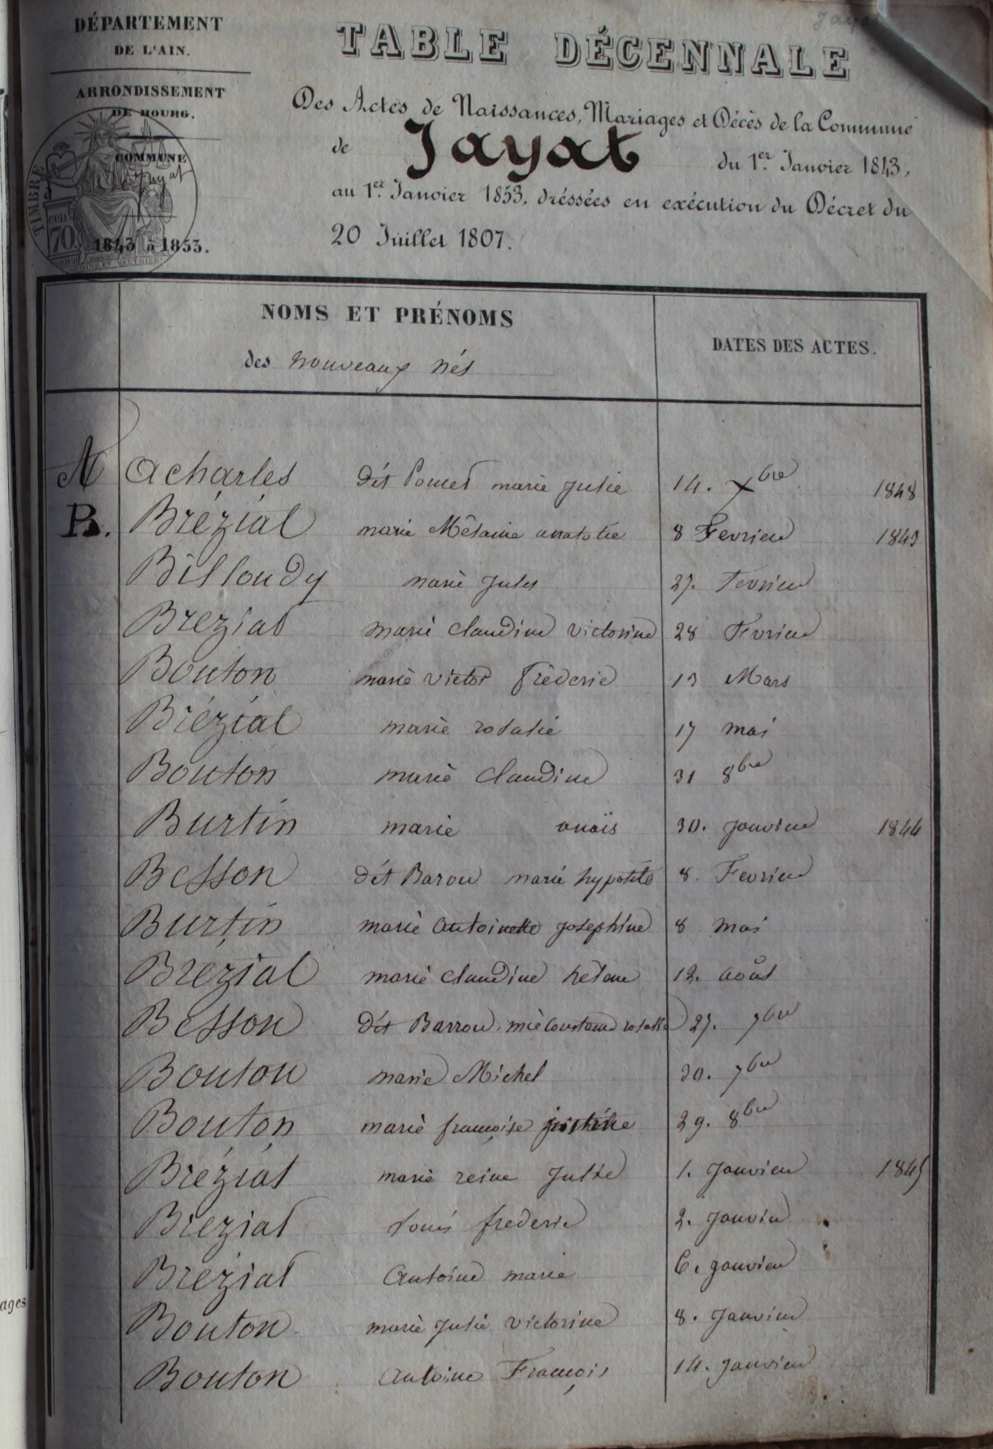 DÉPARTEMENT
DE L'AIN.
ARRONDISSEMENT
DE BOURG.
COMMUNE
de Jayat
1843 à 1853.
TIMBRE
70
TABLE DÉCENNALE
Des Actes de Naissances, Mariages et Décès de la Commune
de Jayat du 1er Janvier 1843,
au 1er Janvier 1853, dréssées en exécution du Décret du
20 Juillet 1807.
NOMS ET PRÉNOMS
des nouveaux nés
DATES DES ACTES.
A acharles dit Poncet marie julie 14. Xbre 1848
B. Brézial marie anatolie 8 Fevrier 1843
Billoudy marie jules 27. Fevrier
Brezial marie claudine victorine 28 Fevrier
Bouton marie victor fréderic 13 Mars
Brézial marie rosalie 17 mai
Bouton marie claudine 31 8bre
Burtin marie anaïs 30. janvier 1844
Besson dit Baron marie hypolite 8. Fevrier
Burtin marie antoinette josephine 8 mai
Brezial marie claudine 12. août
Besson dit Barron. mie rosalie 27. 7bre
Bouton marie Michel 30. 7bre
Bouton marie françoise 29. 8bre
Brézial marie reine julie 1. janvier 1845
Brezial louis frederic 2. janvier
Brézial antoine marie 6. janvier
Bouton marie julie victorine 8. janvier
Bouton antoine François 14. janvier
ages